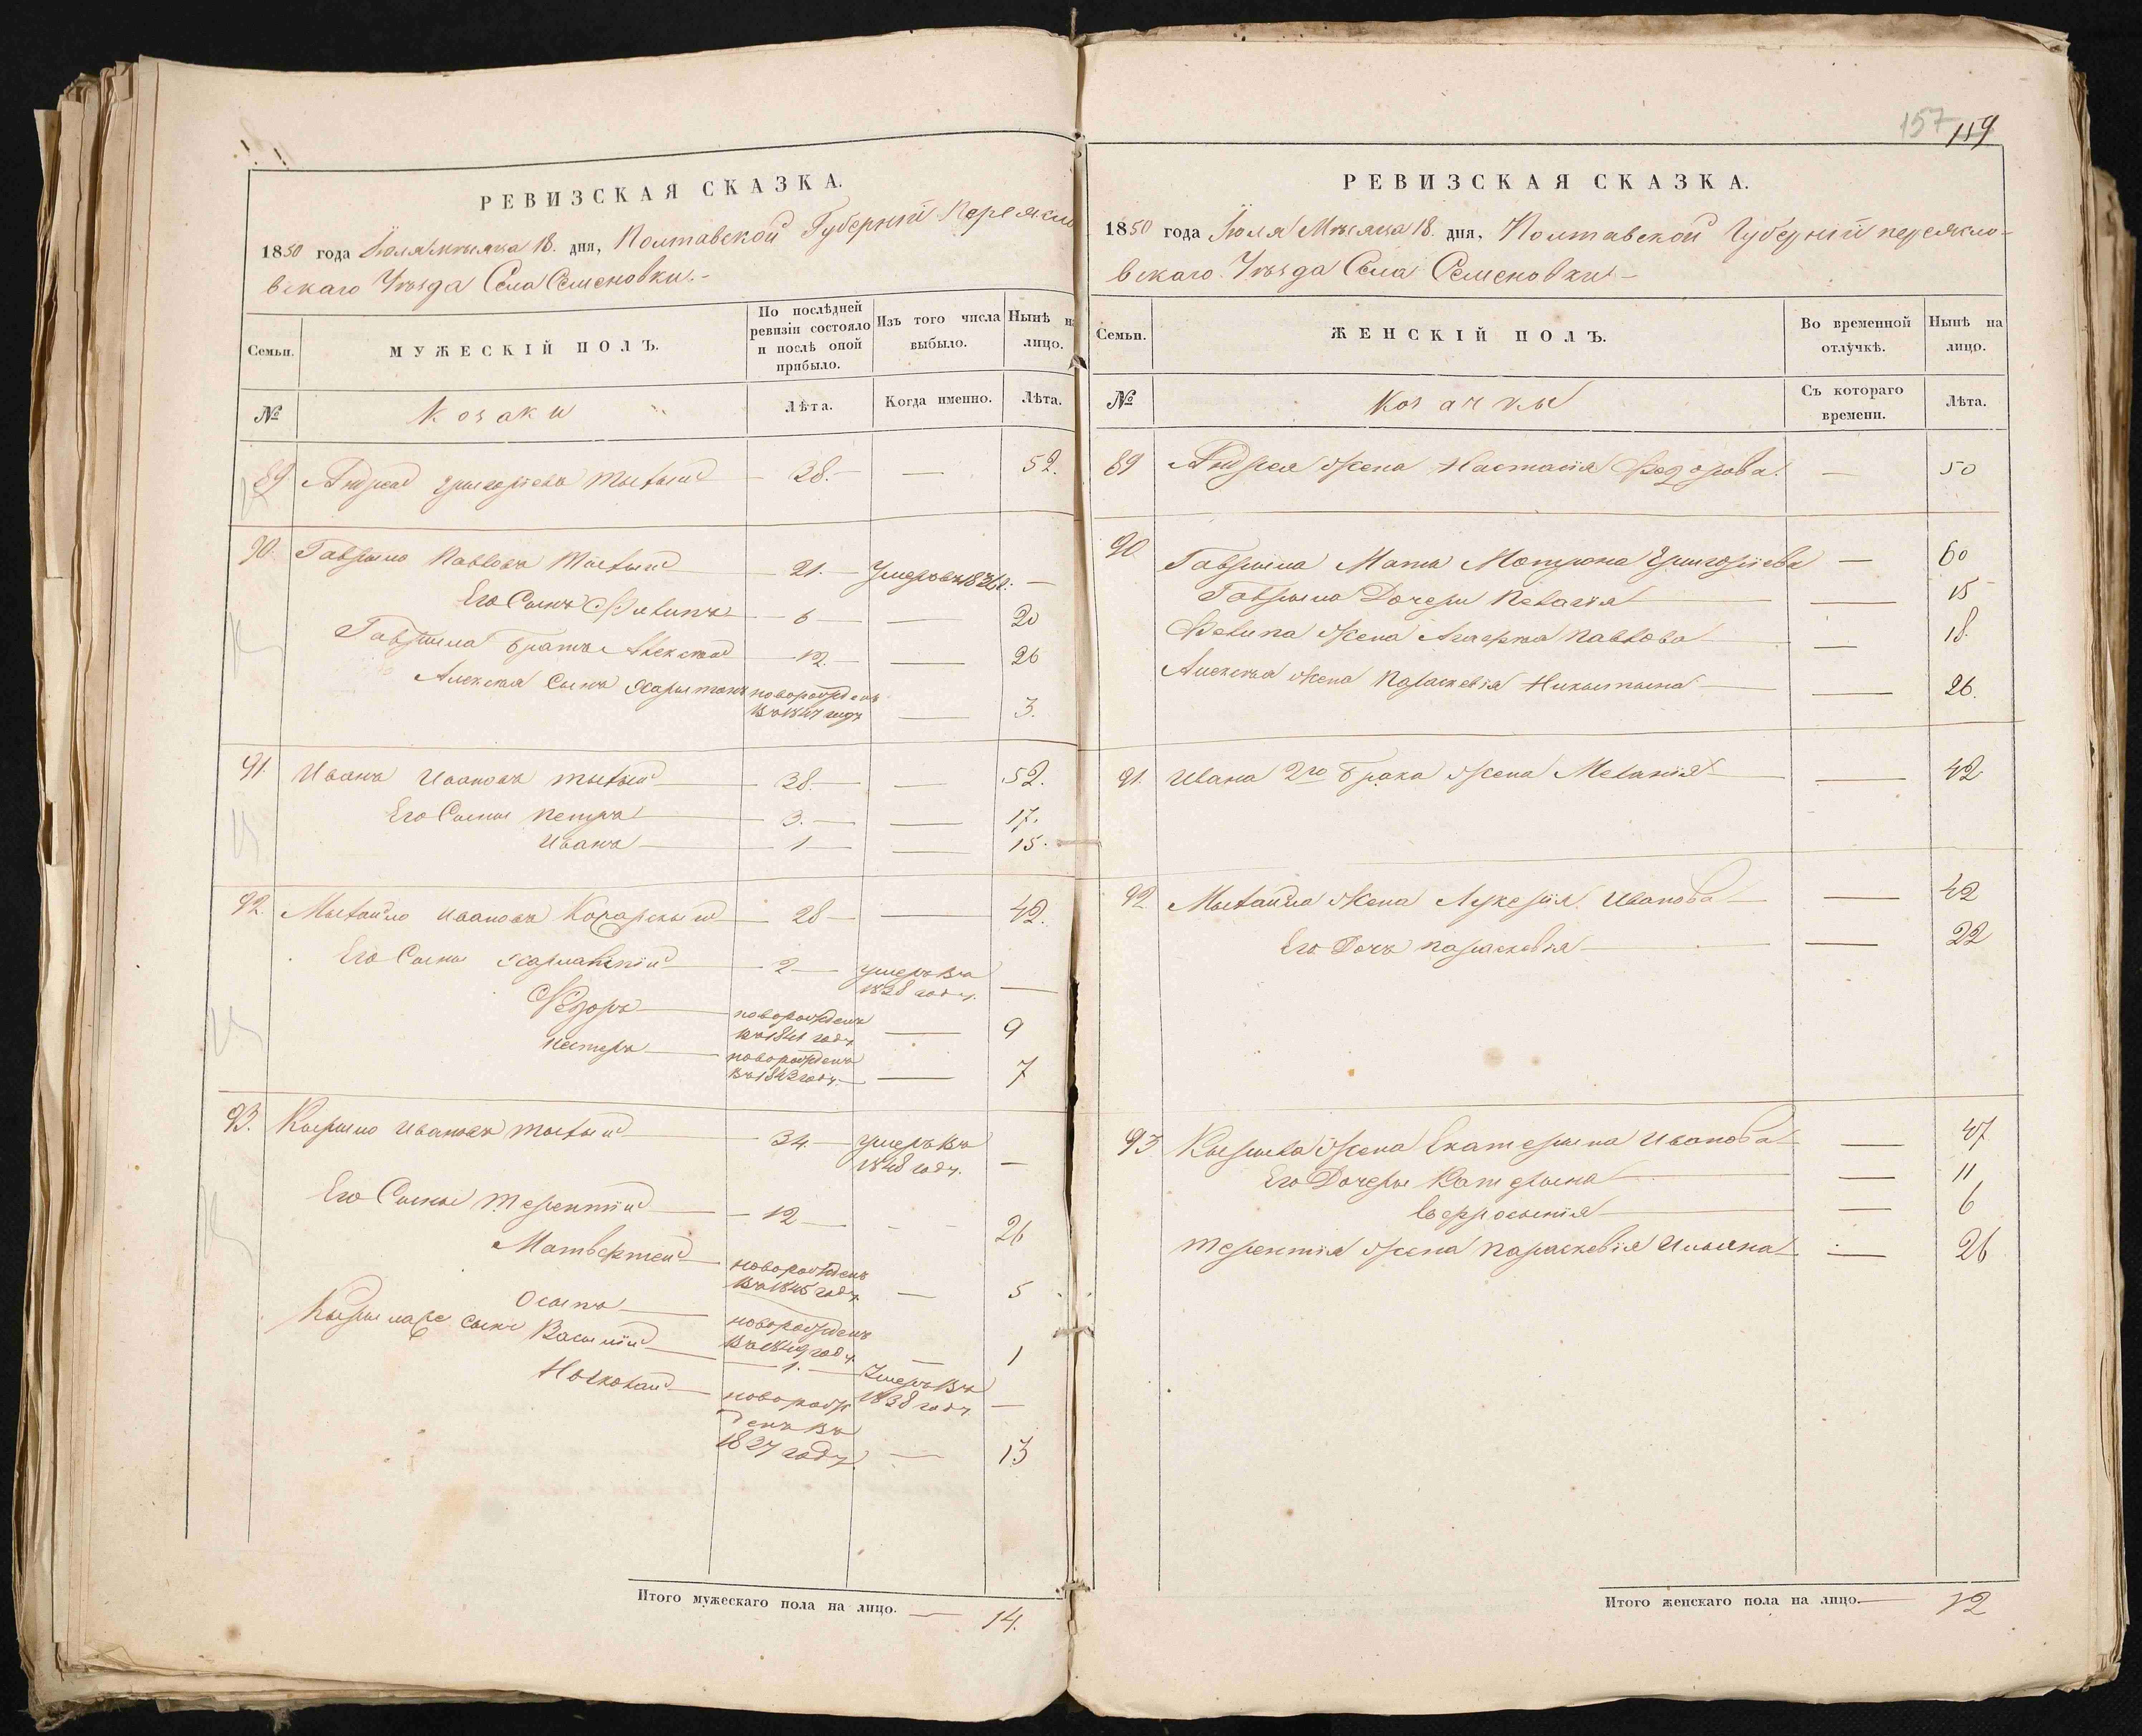 РЕВИЗСКАЯ СКАЗКА.
1850 года Июля Месяца 18. дня, Полтавской Губернии Переясло
вскаго Уезда Села Семеновки.-
Семьи.
МУЖЕСКІЙ ПОЛЪ.
По послѣдней ревизіи состояло и послѣ оной прибыло.
Изъ того числа выбыло.
Нынѣ на лицо.
№
Козаки
Лѣта.
Когда именно.
Лѣта.
89 Андрей Григорьевъ 38. — — 52.
90. Гаврыло Павловъ — 21. — Умеръ въ —
Его Сынъ Филипъ — 6 — — 20
Гаврыла братъ Алексей — 12. — — 26
Алексея Сынъ Харытонъ новорожденъ
въ 1847 годе — 3.
91. Иванъ Ивановъ — 38. — — 52.
Его Сыны Петръ — 3. — — 17.
Иванъ — 1 — — 15.
92. Мыхайло Ивановъ — 28 — — 42.
Его Сыны — 2 — умеръ въ
1838 году. —
Федоръ — новорожденъ
въ 1841 году — 9
Нестеръ — новорожденъ
въ 1843 году. — 7
93. Кырыло Ивановъ — 34. — умеръ въ
1848 году. —
Его Сыны Терентій — 12 — - - 26
Матвей — новорожденъ
въ 1845 году — 5
Осыпъ — новорожденъ
въ 1849 году — 1
Кырыла сынъ Василій — 1. — Умеръ въ
1838 году. —
Николай — новорож
денъ въ
1837 году — 13
Итого мужескаго пола на лицо. — 14.
157 159
РЕВИЗСКАЯ СКАЗКА.
1850 года Июля Месяца 18. дня, Полтавской Губерніи переясло-
вскаго Уезда Села Семеновки -
Семьи.
ЖЕНСКІЙ ПОЛЪ.
Во временной отлучкѣ.
Нынѣ на лицо.
№
Козачкы
Съ котораго времени.
Лѣта.
89 Андрея жена Настасія Федорова. — 50
90 Гаврыла Мать Мотрона Григоріева — 60
Гаврыла Дочери Пелагія — 15
Филипа жена Павлова — 18.
Алексея жена Параскевія Никытына — 26.
91. Ивана 2го брака жена Меланія — 42
92. Мыхайла жена Лукерія Иванова — 42
Его Дочь параскевія — 22
93 Кырыла жена Екатерына Иванова — 47
Его Дочеры Катерына — 11
Евфросынія — 6
Терентія жена параскевія — 26
Итого женскаго пола на лицо. — 12